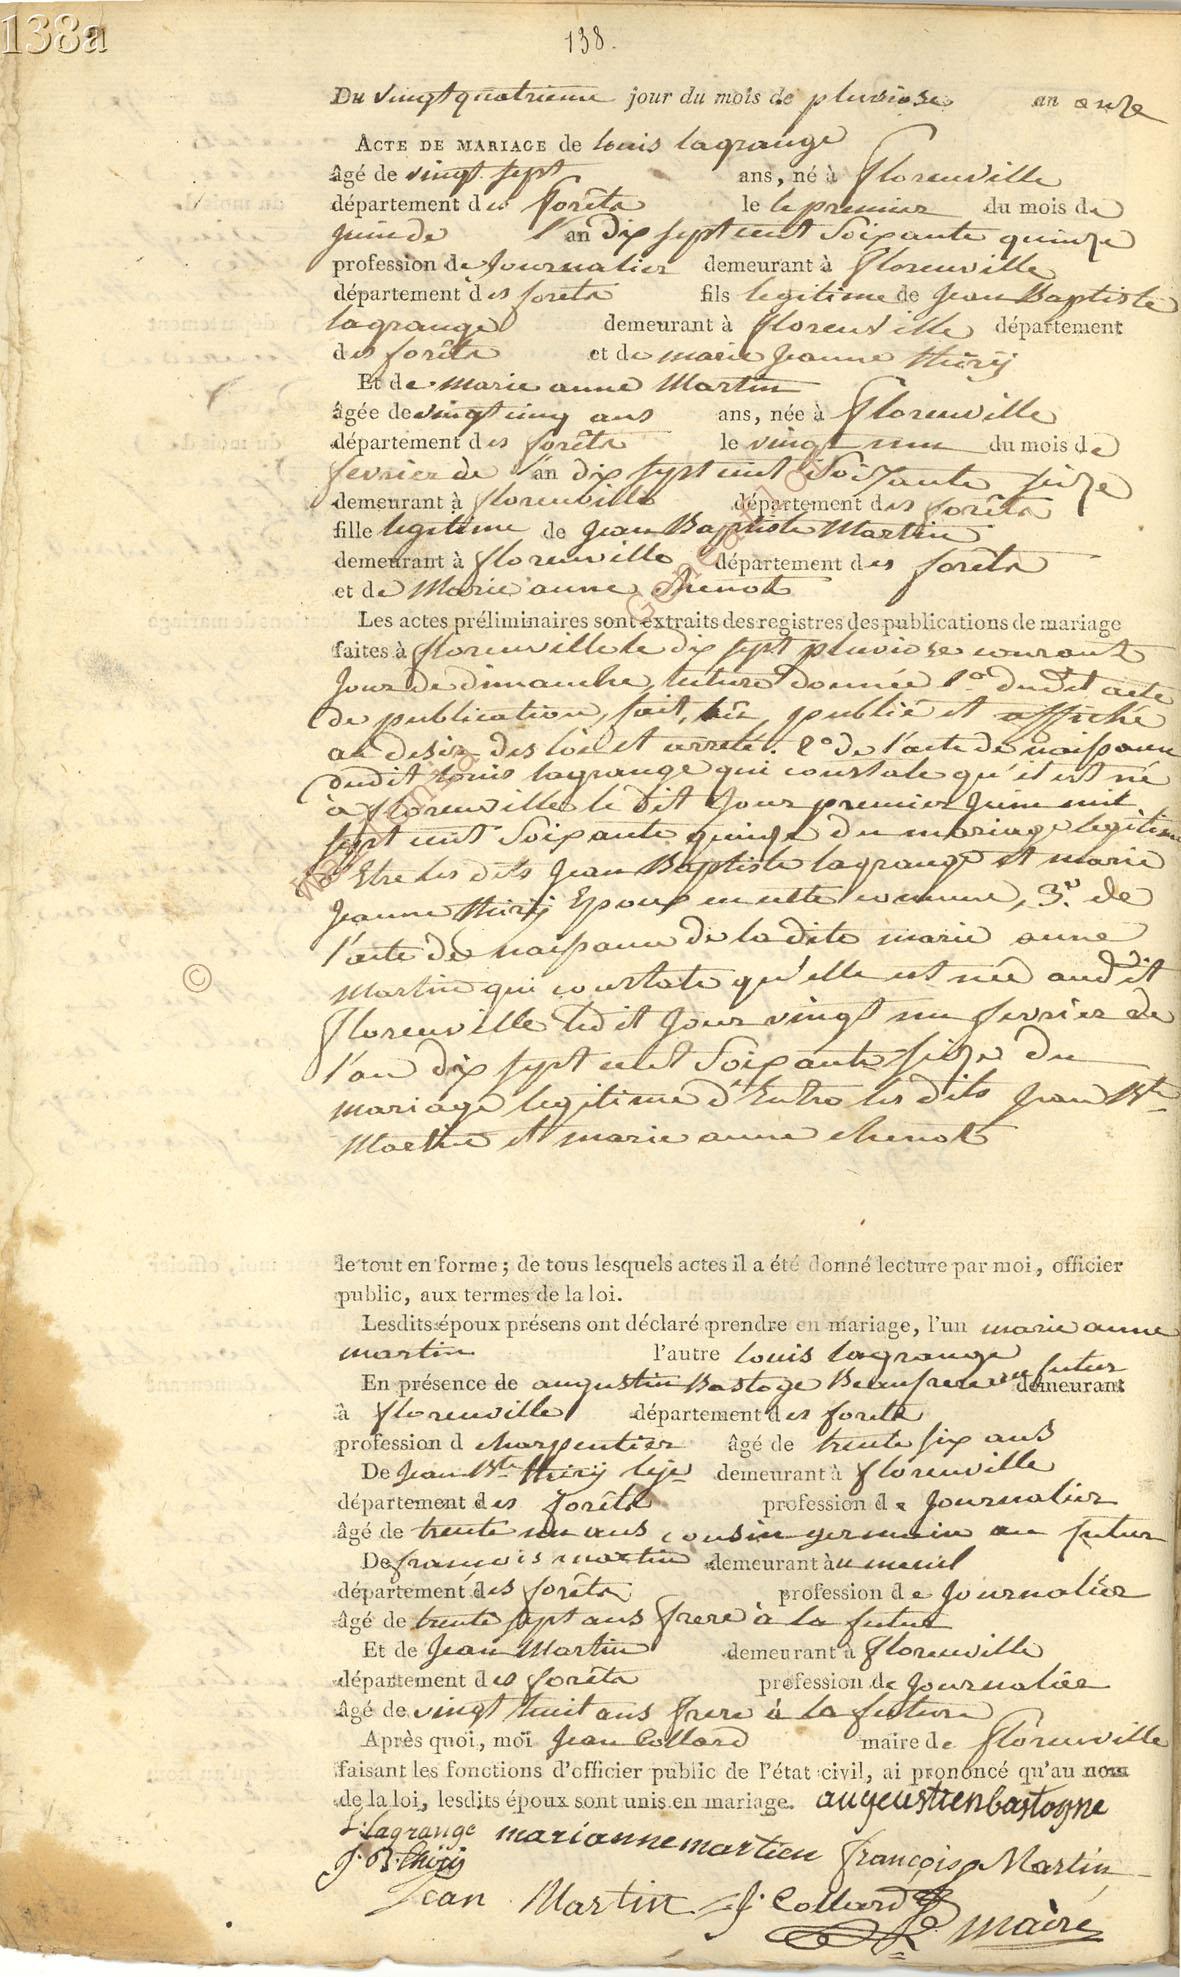 138a
138.
Du vingtquatrieme jour du mois de pluviose an onze
ACTE DE MARIAGE de louis lagrange
âgé de vingt sept ans, né à florenville
département des forêts le le premier du mois de
juin de l'an dix sept cent soixante quinze
profession de journalier demeurant à florenville
département des forêts fils legitime de jean Baptiste
lagrange demeurant à florenville département
des forêts et de marie jeanne thirÿ
Et de marie anne Martin
âgée de vingt cinq ans ans, née à florenville
département des forêts le vingt un du mois de
fevrier de l'an dix sept cent soixante seize
demeurant à florenville département des forêts
fille legitime de jean Baptiste Martin
demeurant à florenville département des forêts
et de Marie anne chenot
Les actes préliminaires sont extraits des registres des publications de mariage
faites à florenville le dix sept pluviose courant
jour de dimanche, lecture donnée 1º dudit acte
de publication, fait, lû, publié et affiché
au desir des lois et arreté. 2º de l'acte de naissance
dudit louis lagrange qui constate qu'il est né
à florenville le dit jour premier juin mil
sept cent soixante quinze du mariage legitime
d'Etre les dits jean Baptiste lagrange et marie
jeanne thirÿ Epoux en cette commune, 3º de
l'acte de naissance de la dite marie anne
Martin qui constate qu'elle est née audit
florenville ledit jour vingt un fevrier de
l'an dix sept cent soixante seize du
mariage legitime d'Entre les dits jean Bte
Martin et marie anne chenot
le tout en forme ; de tous lesquels actes il a été donné lecture par moi, officier
public, aux termes de la loi.
Lesdits époux présens ont déclaré prendre en mariage, l'un marie anne
martin l'autre louis lagrange
En présence de augustin Bastogne Beaufrere au futur demeurant
à florenville département des forêts
profession d charpentier âgé de trente six ans
De jean Bte thirÿ demeurant à florenville
département des forêts profession de journalier
âgé de trente un ans cousin germain au futur
De françois martin demeurant à u menil
département des forêts profession de journalier
âgé de trente sept ans frere à la future
Et de jean Martin demeurant à florenville
département des forêts profession de journalier
âgé de vingt huit ans frere à la future
Après quoi, moi jean Collard maire de florenville
faisant les fonctions d'officier public de l'état civil, ai prononcé qu'au nom
de la loi, lesdits époux sont unis en mariage. augeustienbastogne
L: lagrange mariannemartien françois Martin
j. B. thirÿ
Jean Martin J: Collard
maire
©